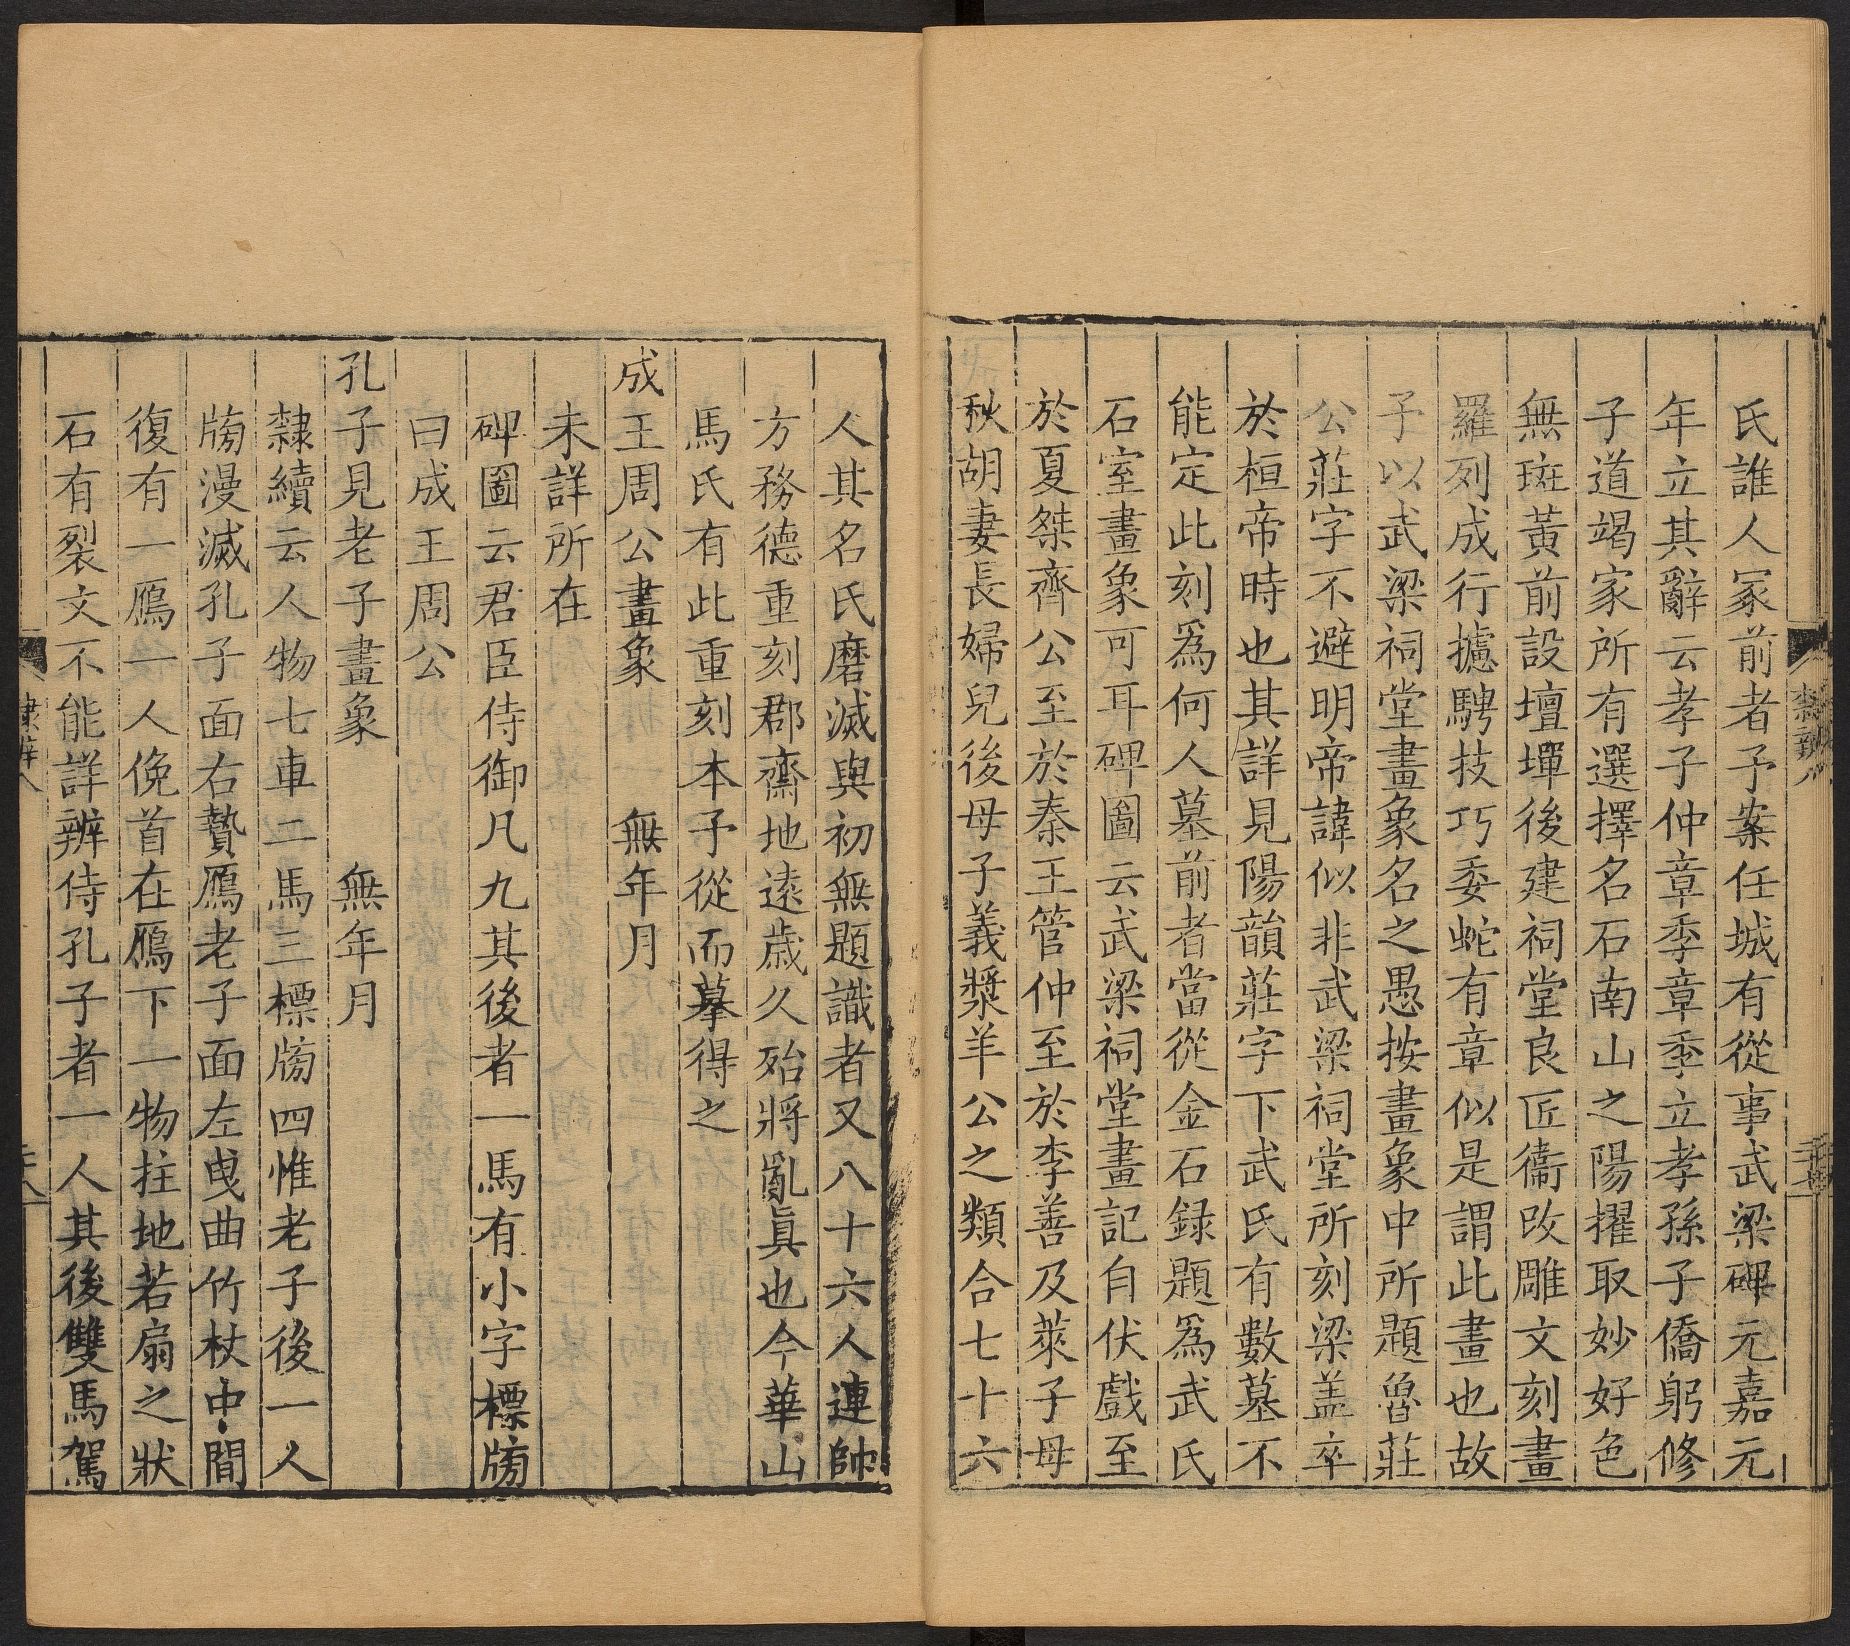 氏誰人冢前者予案任城有從事武梁碑元嘉元
年立其辭云孝子仲章季章季立孝孫子僑躬修
子道竭家所有選擇名石南山之陽擢取妙好色
無斑黃前設壇墠後建祠堂良匠衞改雕文刻畫
羅列成行攄騁技巧委蛇有章似是謂此畫也故
予以武梁祠堂畫象名之愚按畫象中所題魯莊
公莊字不避明帝諱似非武梁祠堂所刻梁盖卒
於桓帝時也其詳見陽韻莊字下武氏有數墓不
能定此刻爲何人墓前者當從金石録題爲武氏
石室畫象可耳碑圖云武梁祠堂畫記自伏戲至
於夏桀齊公至於秦王管仲至於李善及萊子母
秋胡妻長婦兒後母子義漿羊公之類合七十六
人其名氏磨滅與初無題識者又八十六人連帥
方務德重刻郡齋地遠歲久殆將亂眞也今華山
馬氏有此重刻本予從而摹得之
成王周公畫象 無年月
未詳所在
碑圖云君臣侍御凡九其後者一馬有小字標牓
曰成王周公
孔子見老子畫象 無年月
隸續云人物七車二馬三標牓四惟老子後一人
牓漫滅孔子面右贄鴈老子面左曵曲竹杖中間
復有一鴈一人俛首在鴈下一物拄地若扇之狀
石有裂文不能詳辨侍孔子者一人其後雙馬駕
隸辨八
二十八